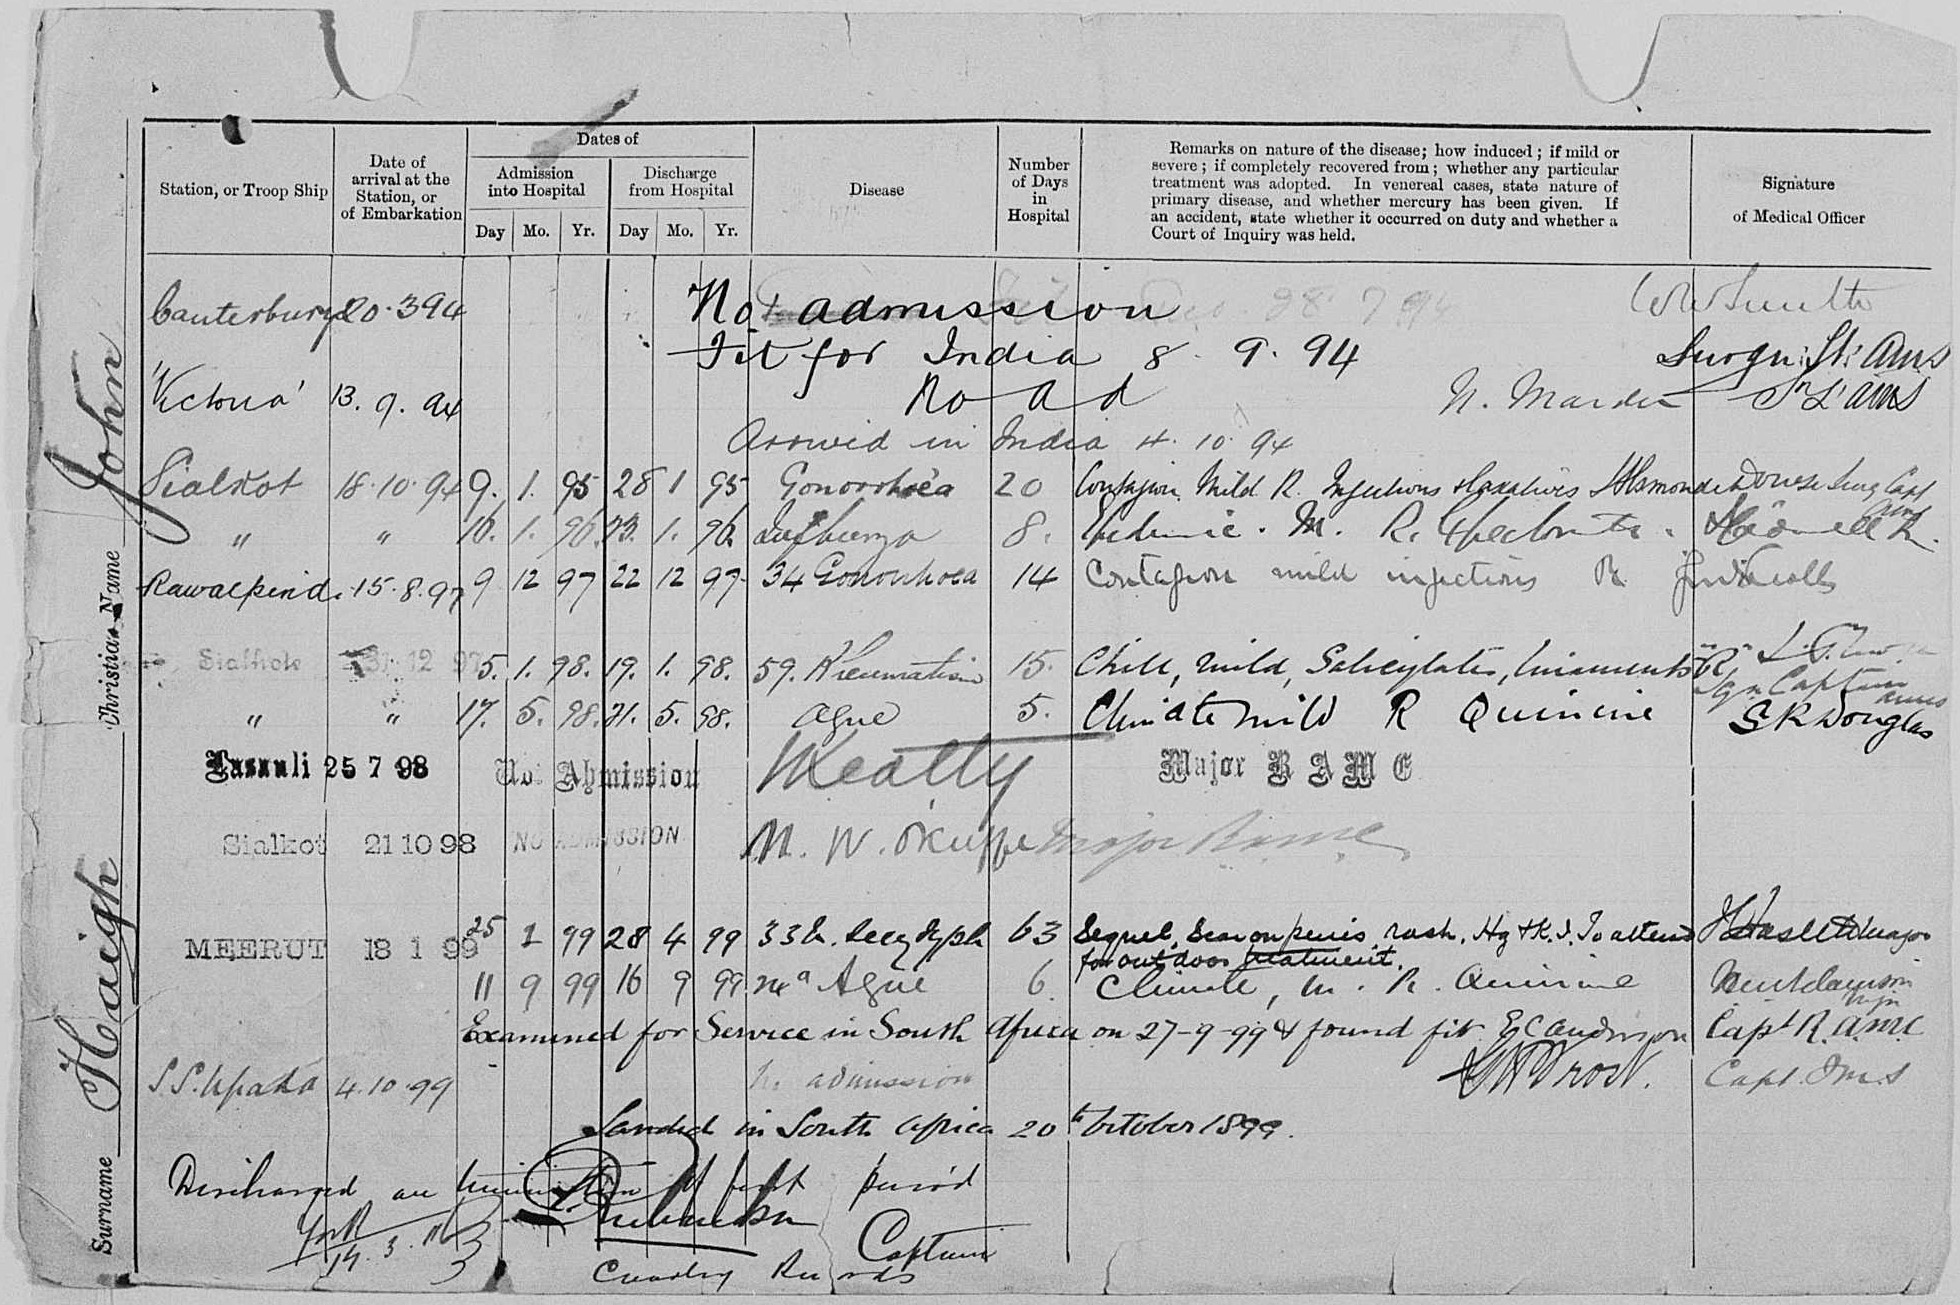 Surname Haigh Christian Name John
Dates of
Station, or Troop Ship
Date of arrival at the Station, or of Embarkation
Admission into Hospital
Discharge from Hospital
Disease
Number of Days in Hospital
Remarks on nature of the disease; how induced; if mild or
severe; if completely recovered from; whether any particular
treatment was adopted. In venereal cases, state nature of
primary disease, and whether mercury has been given. If
an accident, state whether it occurred on duty and whether a
Court of Inquiry was held.
Signature of Medical Officer
Day Mo. Yr. Day Mo. Yr.
Canterbury 20.3 94 No admission 28 7 94 WW Smith
Fit for India 8. 9. 94 Surgn. Lt. AMS
"Victoria" 13. 9. 94 No Ad
Arrived in India 4. 10. 94
Sialkot 18.10.94 9. 1. 95 28 1 95 Gonorrhoea 20 Contagion Mild R. Injections & laxatives Surg Capt
" " 16. 1. 96. 23. 1. 96. Influenza 8. M. R.
Rawalpindi 15.8.97 9 12 97 22 12 97 34 Gonorrhoea 14 Contagion mild injections R
Sialkote 31 12 97 5. 1. 98. 19. 1. 98. 59. Rheumatism 15. Chill, mild, Salicylates, liniments "R"
Sgn Captain AMS
" " 17. 5. 98. 21. 5. 98. Ague 5. Climate mild R Quinine S R Douglas
Kasauli 25 7 98 No Ahmission Major R A M C
Sialkot 21 10 98 NO ADMISSION M. W. Major RAMC
MEERUT 18 1 99 25 2 99 28 4 99 33 b. Secy Syph 63 Sequel, Scar on penis, rash. Hg & K.I. To attend Major
for outdoor treatment.
11 9 99 16 9 99 Ague 6. Climate, m. R. Quinine
Examined for Service in South Africa on 27-9-99 & found fit Capt R.AMC
S.S. Upada 4.10.99 No admission Frost. Capt. IMS
Landed in South Africa 20th October 1899.
Discharged on termination of first period
York
14. 3.
Captain
Cavalry Records